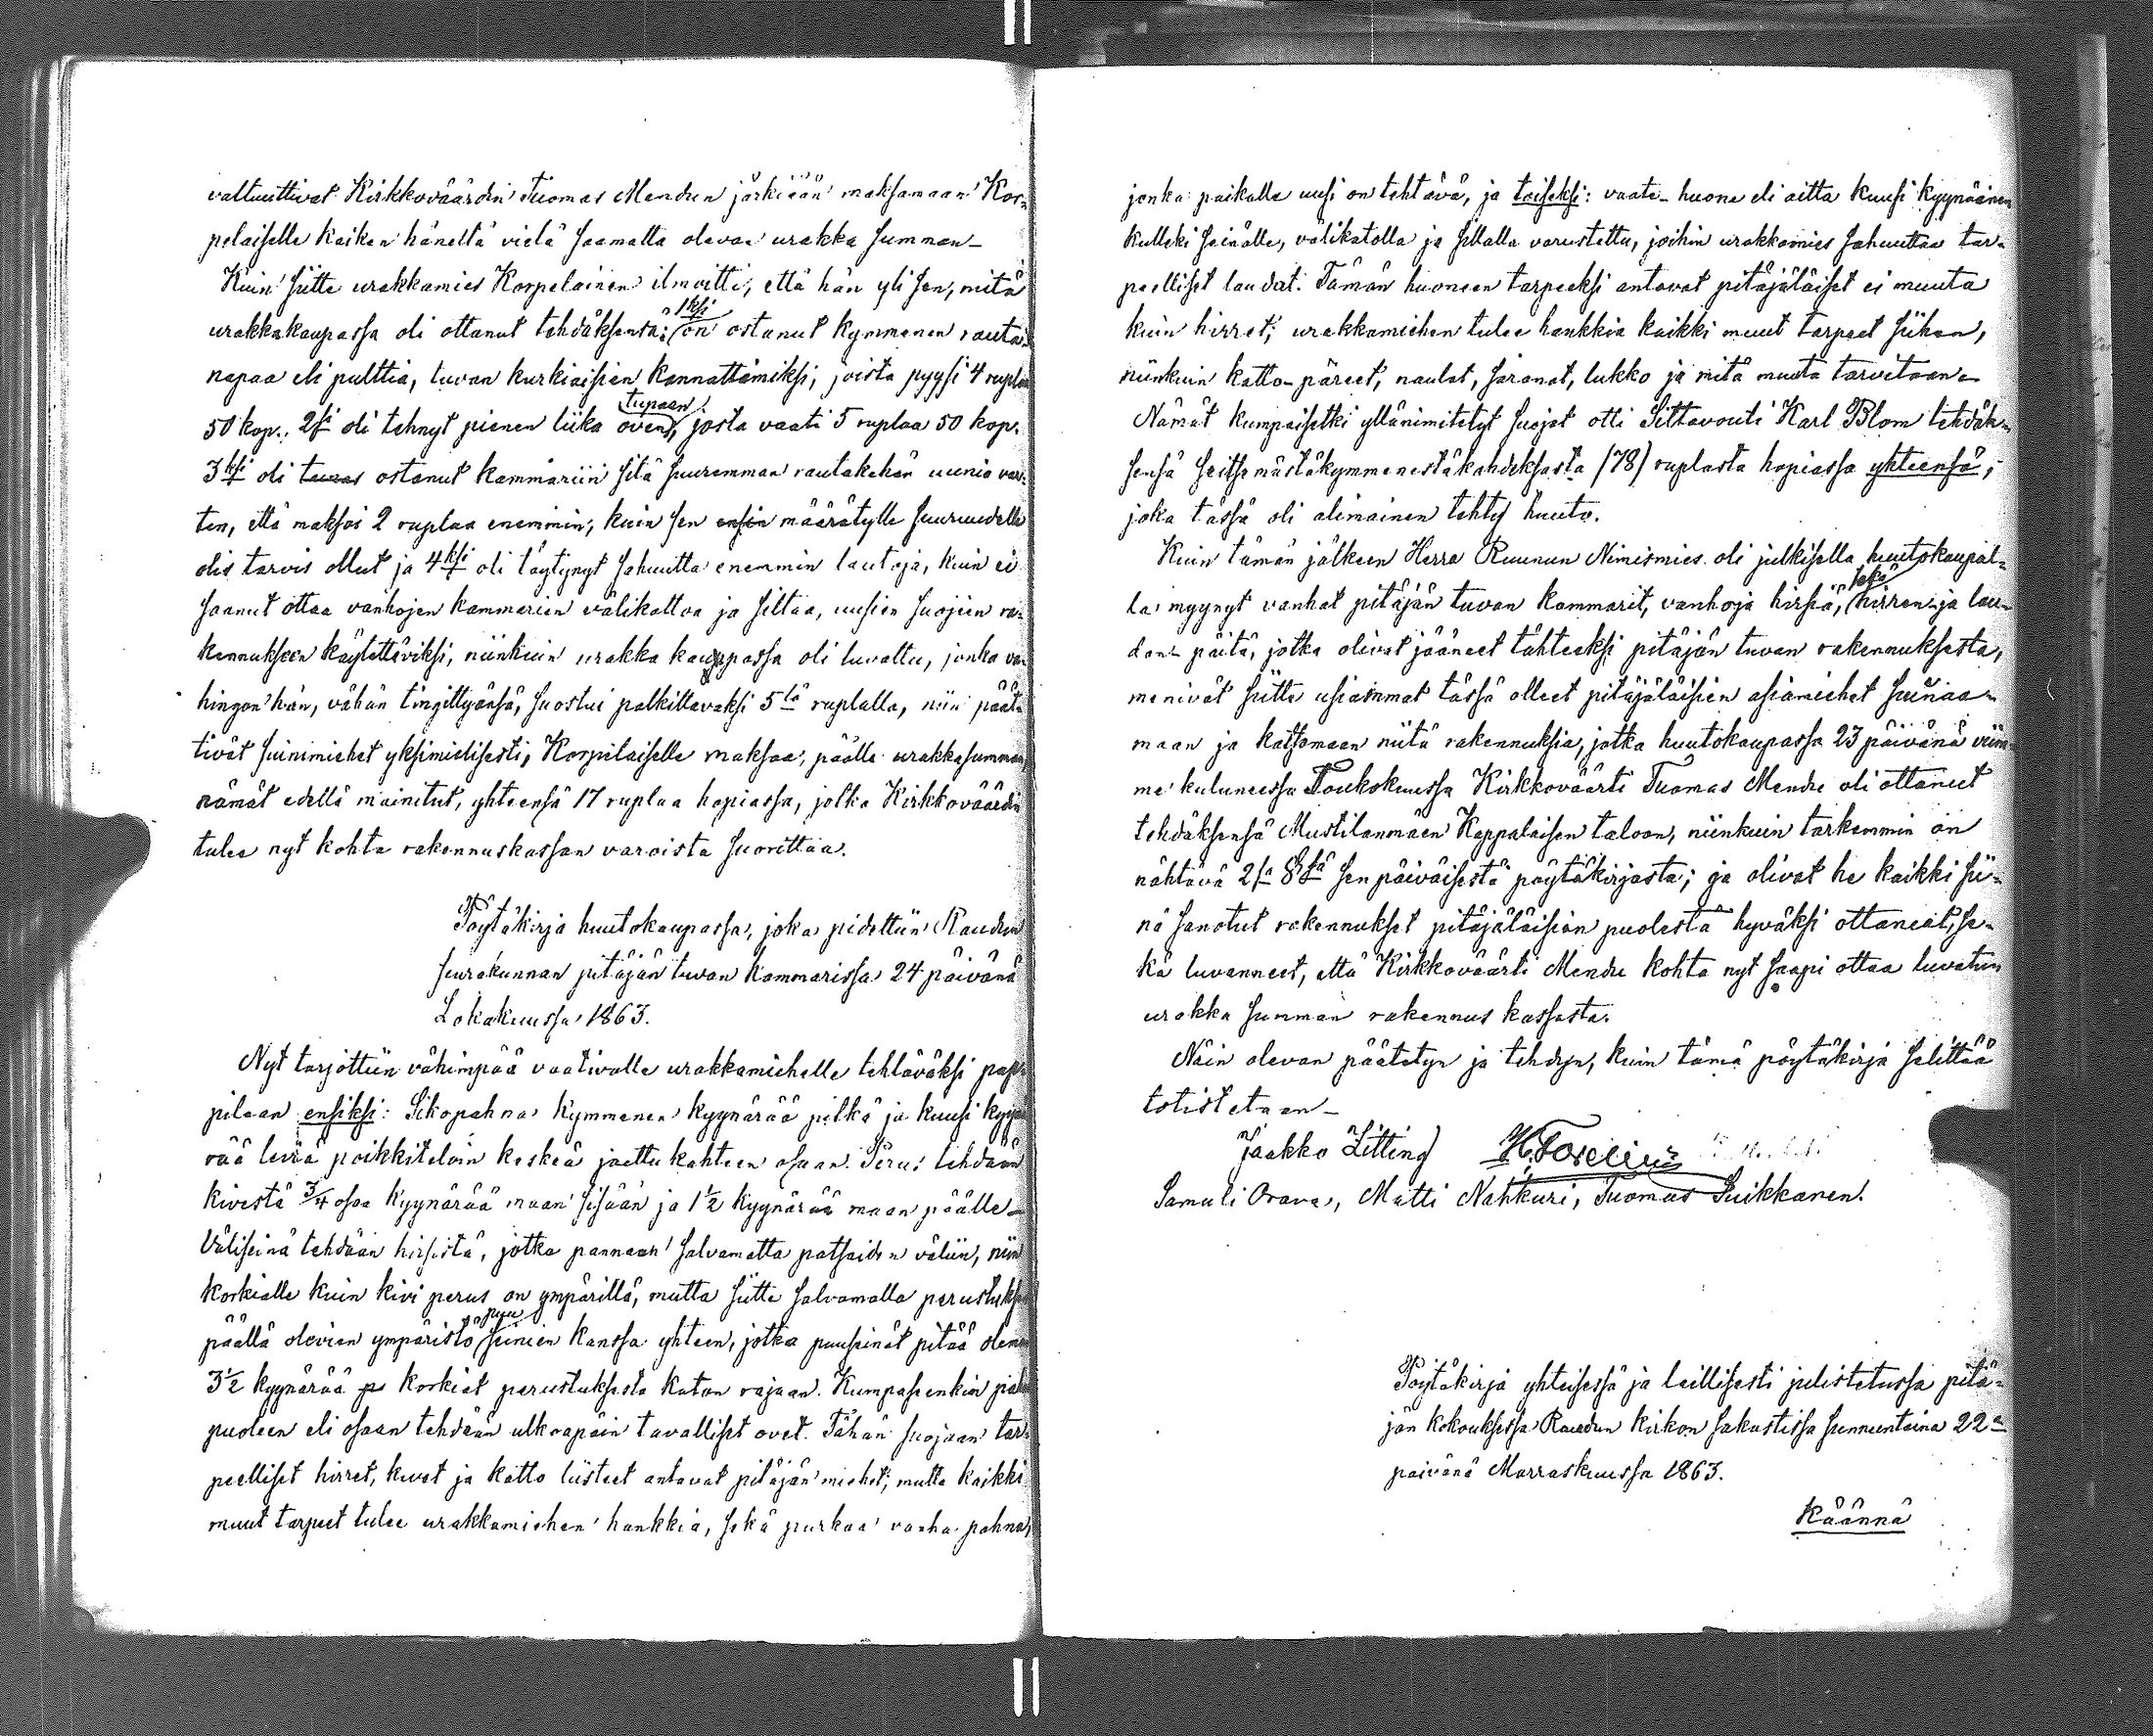 valtuuttivat Kirkkoväärdin Tuomas Mendun järkiään maksamaan Kor-
pelaiselle kaiken häneltä vielä saamatta olevan urakka summan_
Kuin sitte urakkamies Korpelainen ilmoitti, että hän yli sen, mitä
1ksi
urakkakaupassa oli ottanut tehdäksensä: on ostanut kymmenen rauta
napaa eli pulttia, tuvan kurkiaisien kannattimiksi, joista pyysi 4 ruplaa
tupaan
50 kop.. 2si oli tehnyt pienen liika oven, josta vaati 5 ruplaa 50 kop.
3ksi oli ostanut kammariin sitä suuremman rautakehän uunia var-
ten, että maksoi 2 ruplaa enemmin, kuin sen ensin määrätylle suuruudelle
olis tarvis ollut ja 4ksi oli täytynyt sahuutta enemmin lautoja, kuin ei
saanut ottaa vanhojen kammarien välikattoa ja siltaa, uusien suojien ra-
kennukseen käytettäviksi, niinkuin urakka kaupassa oli luvattu, jonka va-
hingon hän, vähän tingittyänsä, suostui palkittavaksi 5lä ruplalla, niin päät-
tivät suinimiehet yksimielisesti, Korpilaiselle maksaa, päälle urakkasumman,
nämät edellä mainitut, yhteensä 17 ruplaa hopiassa, jotka Kirkkoväärdin
tulee nyt kohta rakennuskassan varoista suorittaa.
Pöytäkirja huutokaupassa, joka pidettiin Raudun
seurakunnan pitäjän tuvan kammarissa 24 päivänä
Lokakuussa 1863.
Nyt tarjottiin vähimpää vaativalle urakkamiehelle tehtäväksi pap-
pilaan ensiksi: Sikopahna kymmenen kyynärää pitkä ja kuusi kyynä
rää leviä poikkiteloin keskeä jaettu kahteen osaan. Perus tehdään
kivestä 3/4 osaa kyynärää maan sisään ja 1 1/2 kyynärää maan päälle_
Väliseinä tehdään hirsistä, jotka pannaan salvamatta patsaiden väliin, niin
korkialle kuin kivi perus on ympärillä, mutta sitte salvamalla perustuksen
puu
päällä olevien ympäristö seinien kanssa yhteen, jotka puuseinät pitää oleman
3 1/2 kyynärää korkiat perustuksesta katon rajaan. Kumpasenkin
puoleen eli osaan tehdään ulkoapäin tavalliset ovet. Tähän suojaan tar-
peelliset hirret, kivet ja katto liisteet antavat pitäjän miehet, mutta kaikki
muut tarpeet tulee urakkamiehen hankkia, sekä purkaa vanha pahna,
jonka paikalle uusi on tehtävä, ja toiseksi: vaate-huone eli aitta kuusi kyynäräinen
kulleki seinälle, välikatolla ja sillalla varustettu, joihin urakkamies sahuuttaa tar-
peelliset laudat. Tämän huoneen tarpeeksi antavat pitäjäläiset ei muuta
kuin hirret, urakkamiehen tulee hankkia kaikki muut tarpeet siihen,
niinkuin katto-päreet, naulat, saranat, lukko ja mitä muuta tarvitaan_
Nämät kumpaisetki yllänimitetyt suojat otti Siltavouti Karl Blom tehdäk-
sensä seitsemästäkymmenestäkahdeksasta (78) ruplasta hopiassa yhteensä,
joka tässä oli alimainen tehty huuto.
Kuin tämän jälkeen Herra Ruunun Nimismies oli julkisella huutokaupal-
sekä
la myynyt vanhat pitäjän tuvan kammarit, vanhoja hirsiä, hirren-ja lau-
dan-päitä, jotka olivat jääneet tähteeksi pitäjän tuvan rakennuksesta,
menivät sitte usiammat tässä olleet pitäjäläisien asiamiehet suinaa-
maan ja katsomaan niitä rakennuksia, jotka huutokaupassa 23 päivänä viim
me kuluneessa Toukokuussa Kirkkoväärti Tuomas Mendu oli ottanut
tehdäksensä Mustilanmäen Kappalaisen taloon, niinkuin tarkemmin on
nähtävä 2sa §sä sen päiväisestä pöytäkirjasta; ja olivat he kaikki sii-
nä sanotut rakennukset pitäjäläisien puolesta hyväksi ottaneet, se-
kä luvanneet, että Kirkkoväärti Mendu kohta nyt saapi ottaa luvatun
urakka summan rakennus kassasta.
Näin olevan päätetyn ja tehdyn, kuin tämä pöytäkirja selittää
totistetaan_
Jaakko Litting
Samuli Orava, Matti Nahkuri, Tuomas Suikkanen.
Pöytäkirja yhteisessä ja laillisesti julistetussa pitä-
jän kokouksessa Raudun kirkon sakastissa sunnuntaina 22a
päivänä Marraskuussa 1863.
Käännä